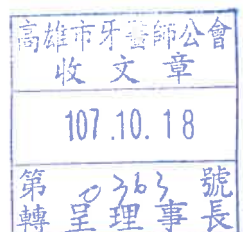 高雄市牙醫師公會
收文章
107.10.18
第0363號
轉呈理事長